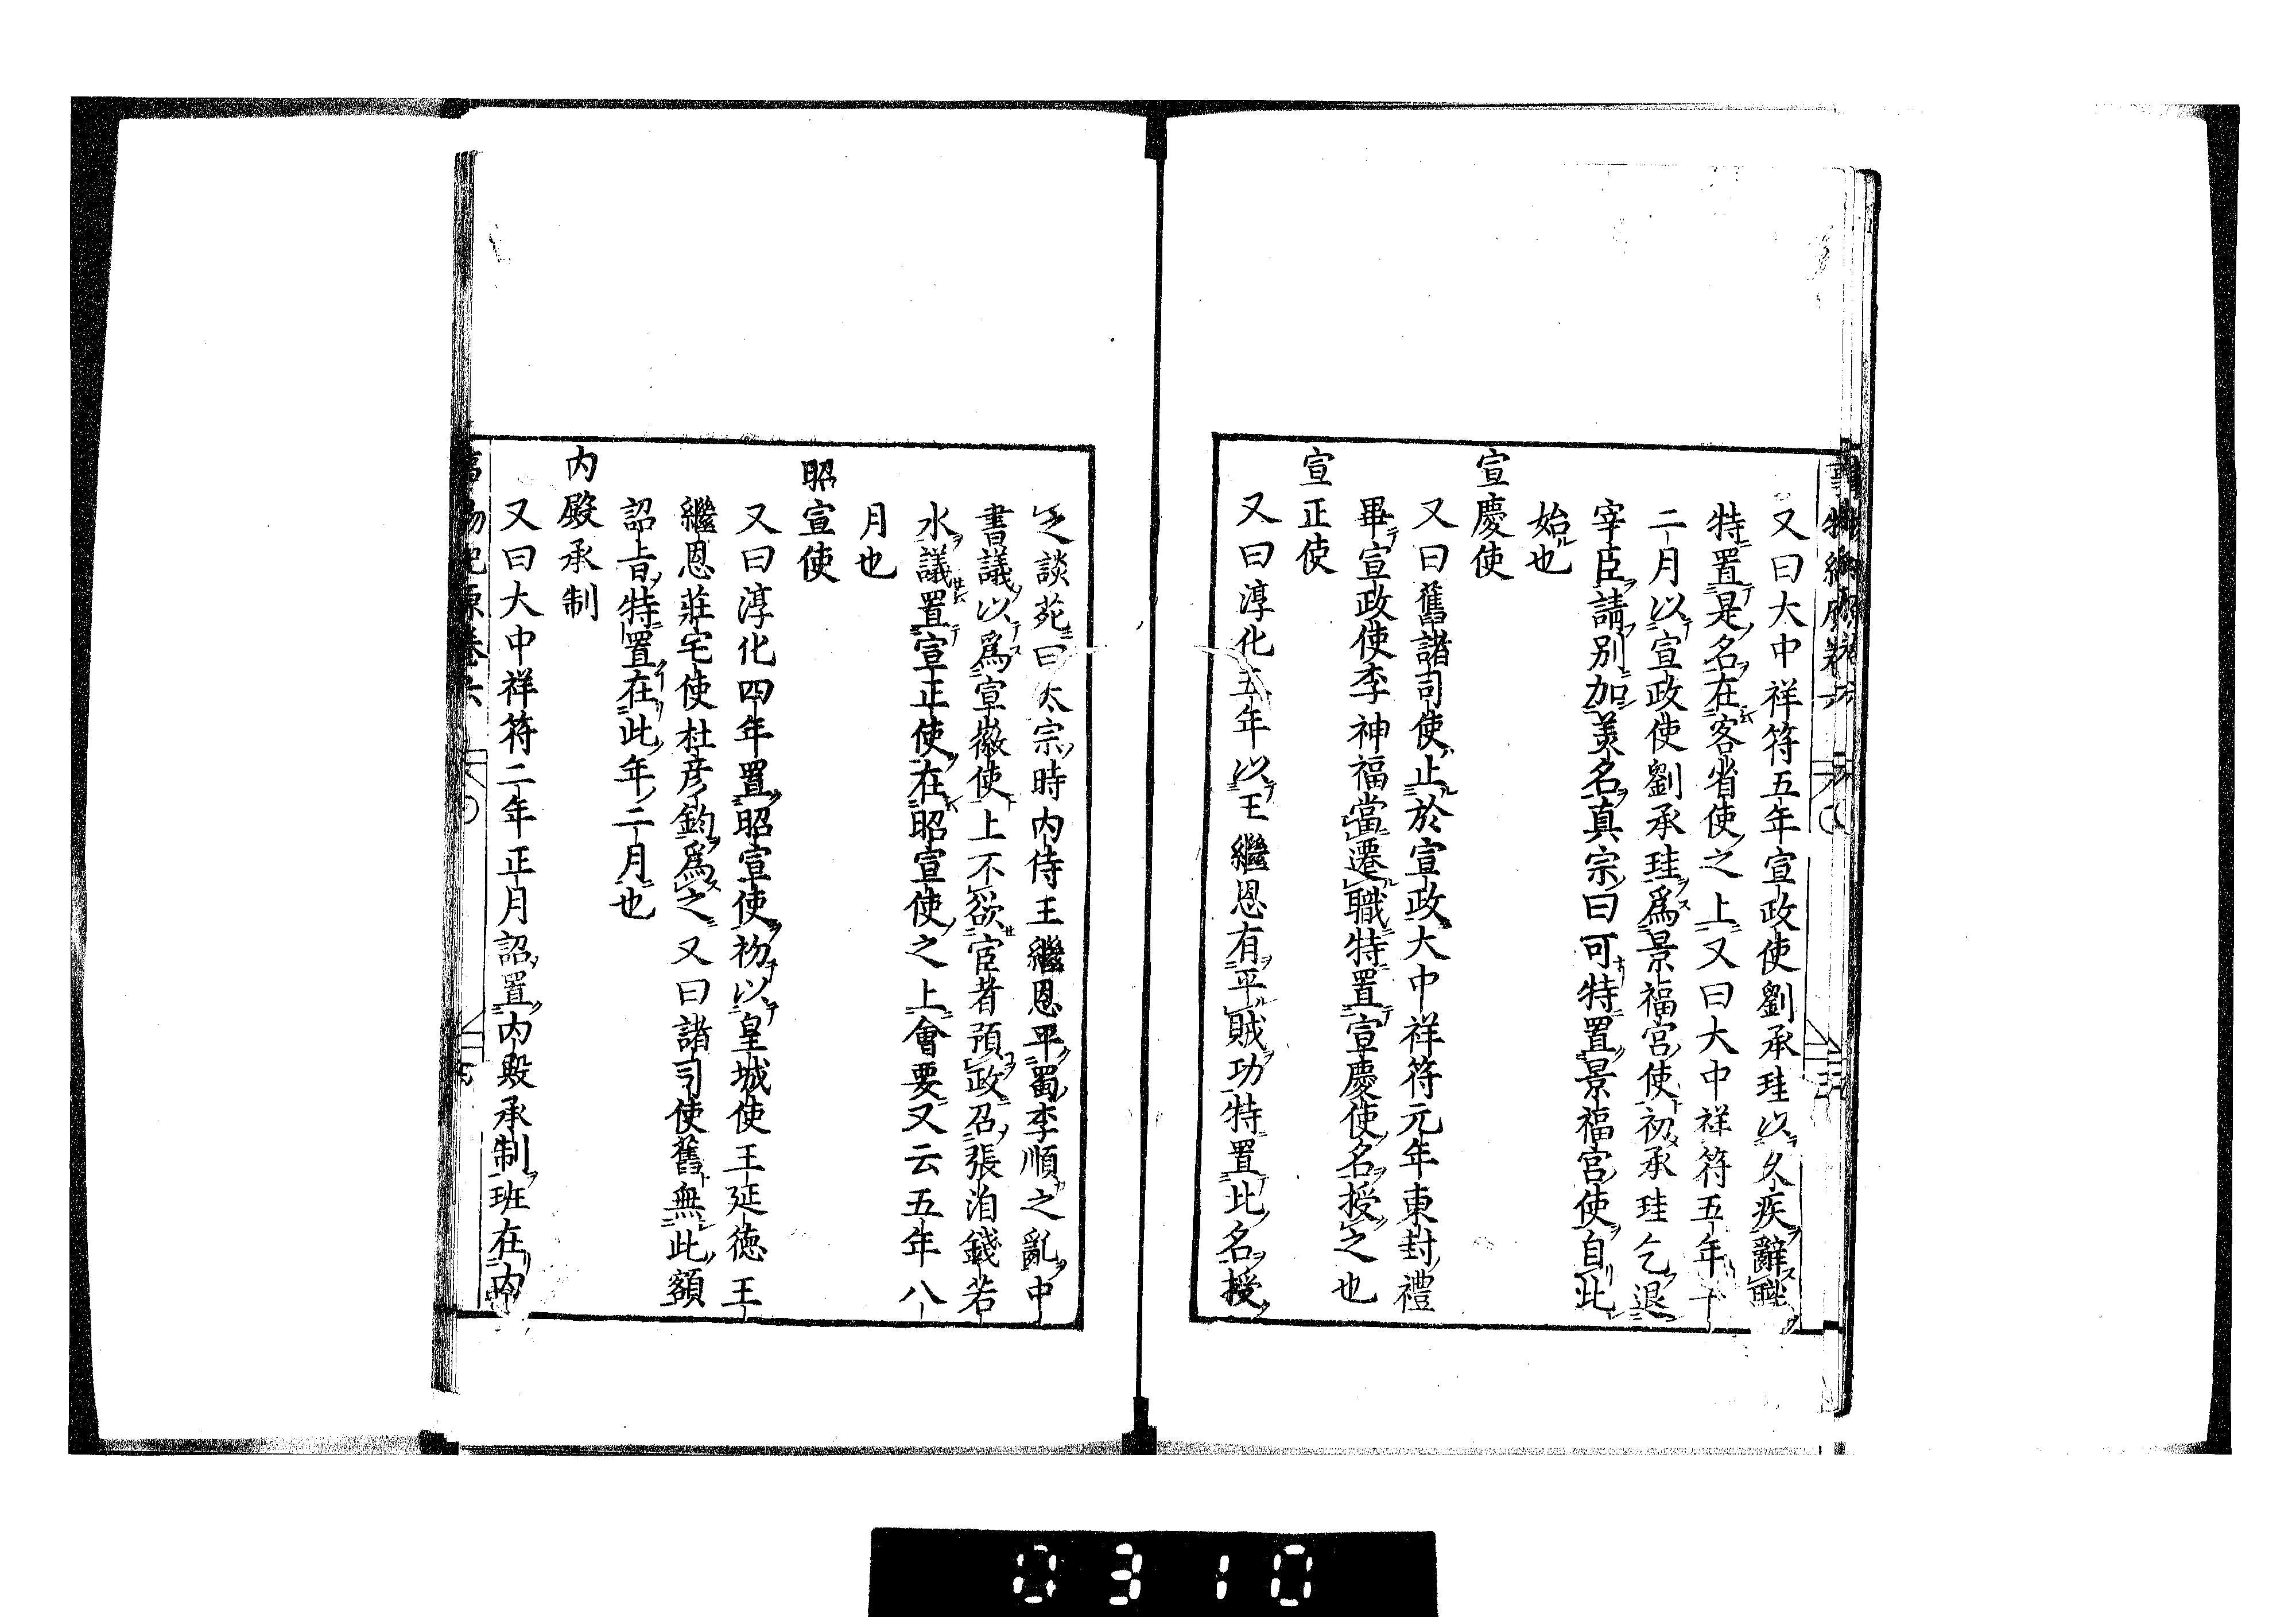 又曰大中祥符五年宣政使劉承珪以久疾辭職
特置是名在客省使之上又曰大中祥符五年十
二月以宣政使劉承珪爲景福宮使初承珪乞退
宰臣請別加美名真宗曰可特置景福宮使自此
始也
宣慶使
又曰舊諸司使止於宣政大中祥符元年東封禮
畢宣政使李神福當遷職特置宣慶使名授之也
宣正使
又曰淳化五年以王繼恩有平賊功特置此名授
之談苑曰太宗時内侍王繼恩平蜀李順之亂中
書議以爲宣徽使上不欲宦者預政召張洎錢若
水議置宣正使在昭宣使之上會要又云五年八
月也
昭宣使
又曰淳化四年置昭宣使初以皇城使王延德王
繼恩莊宅使杜彦鈞爲之又曰諸司使舊無此額
詔旨特置在此年二月也
内殿承制
又曰大中祥符二年正月詔置内殿承制班在内
物紀原卷六
0310